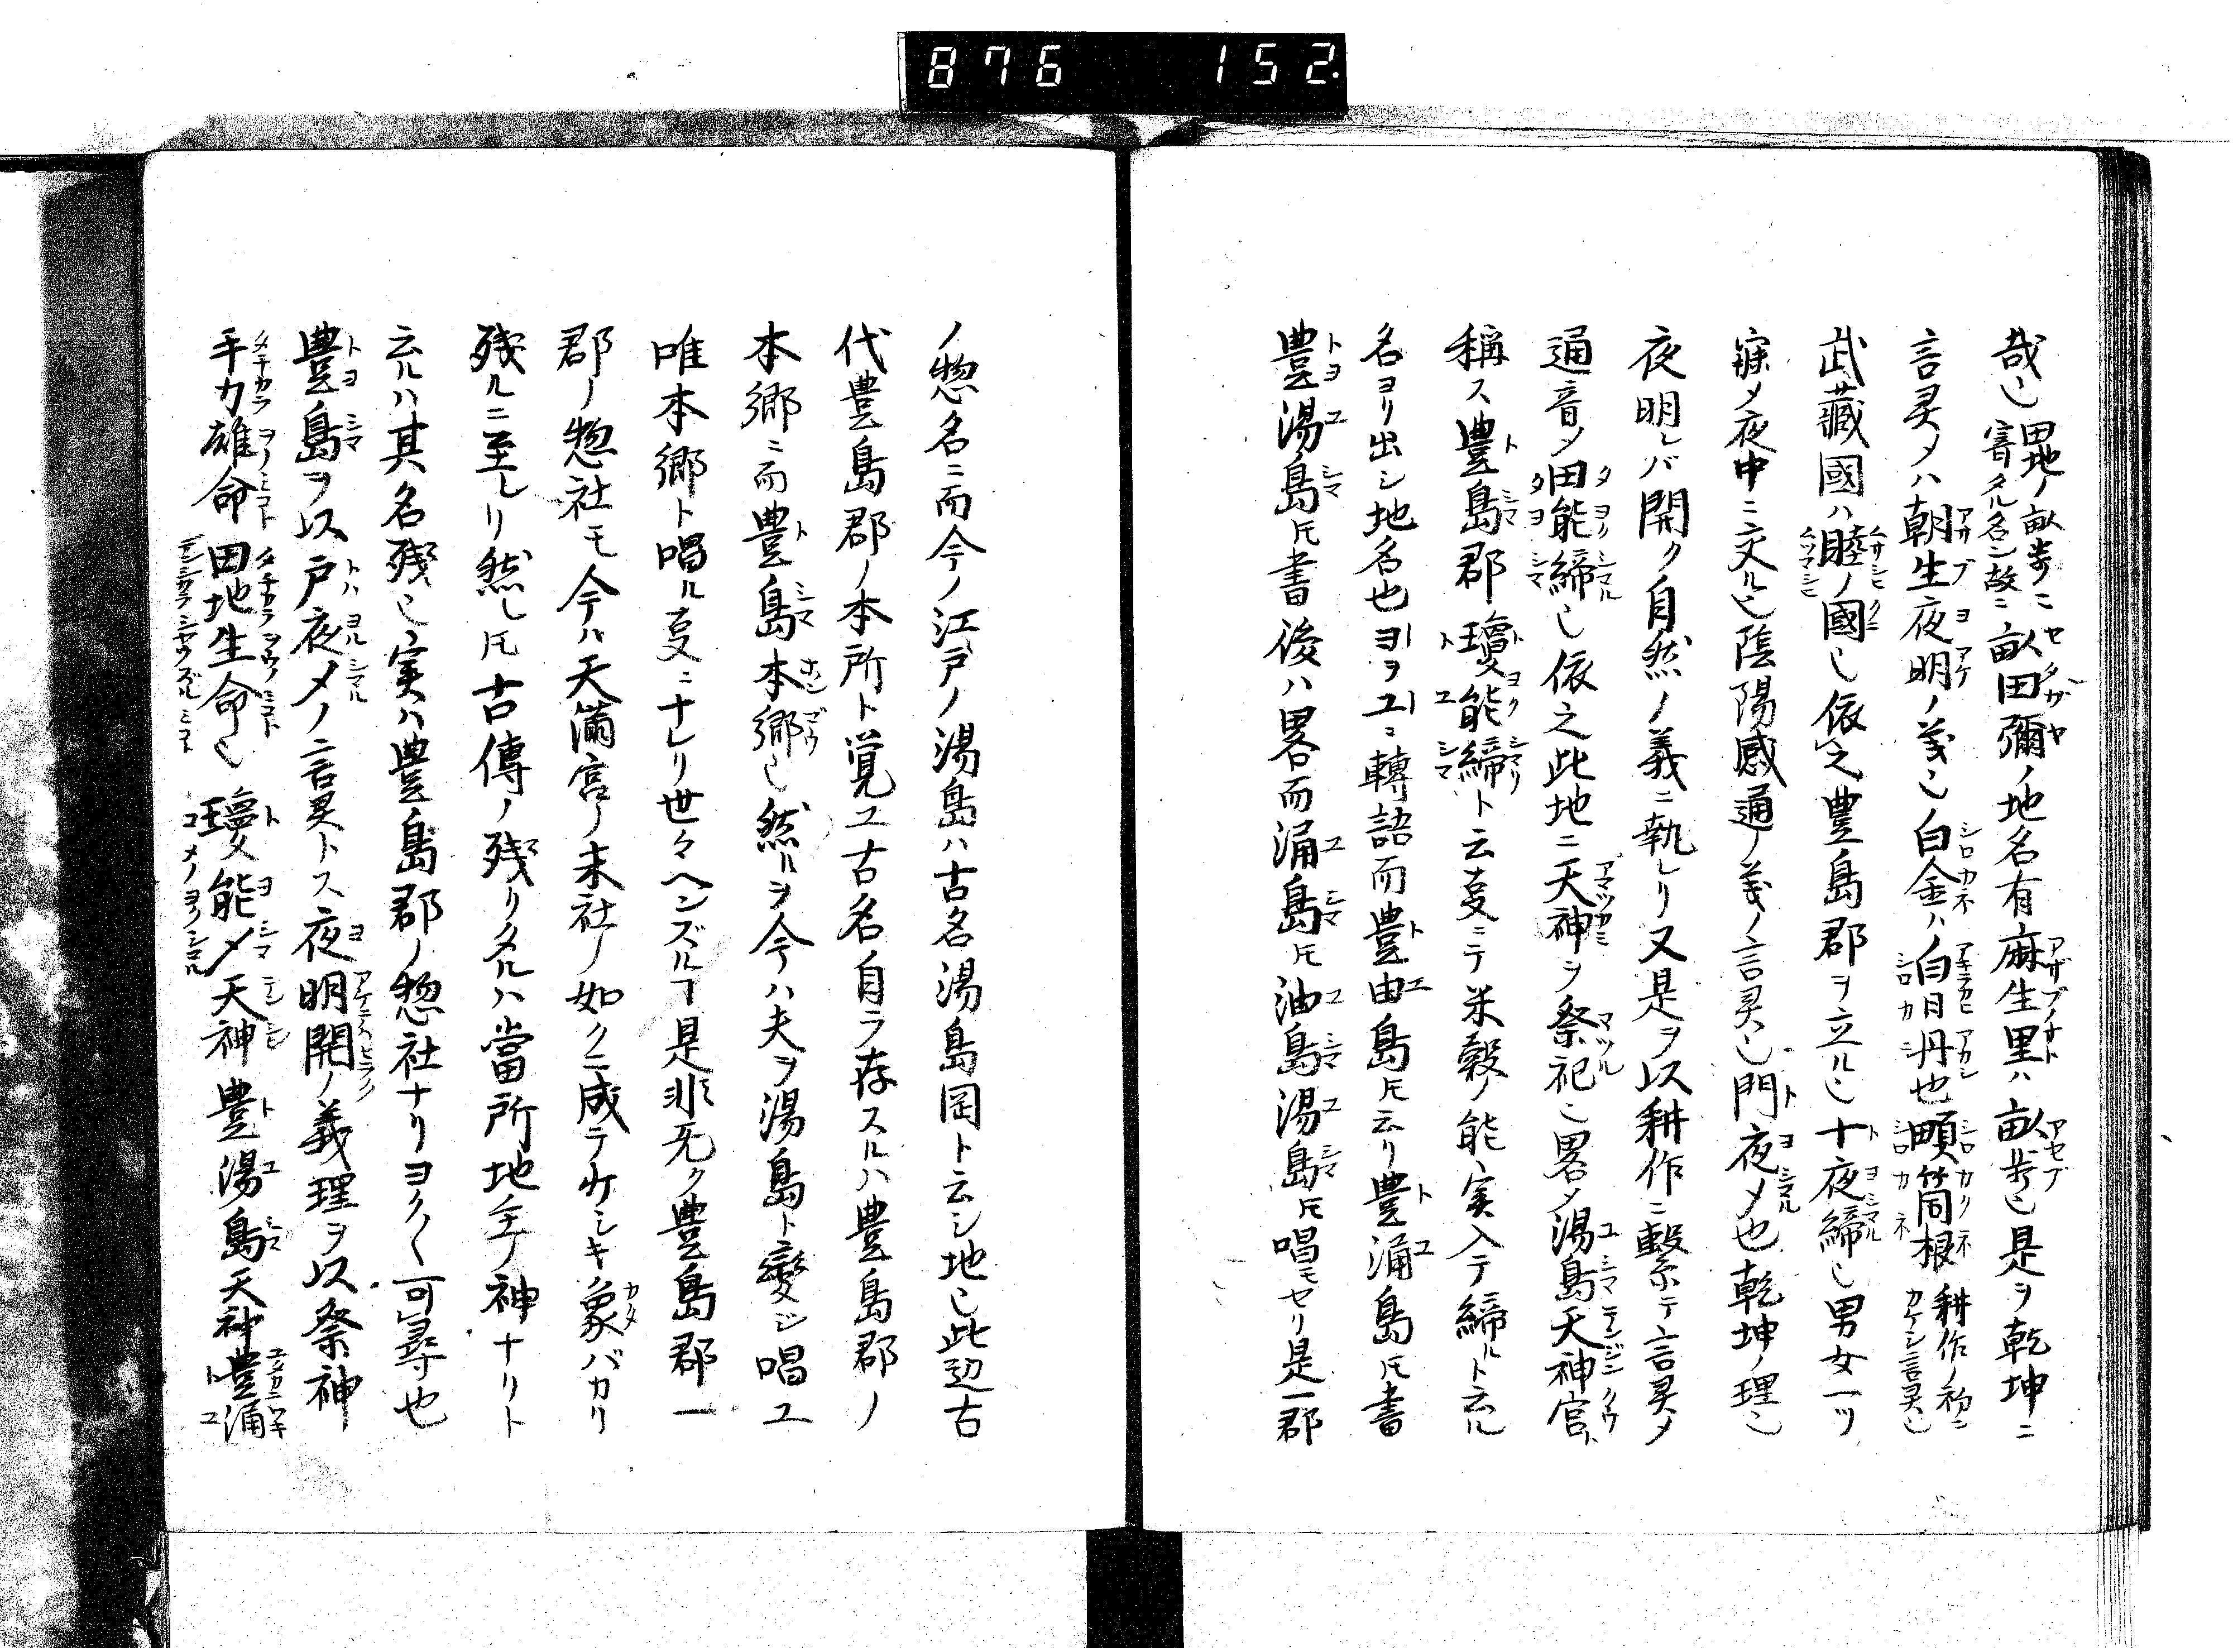 876 152.
哉也田地ノ畝歩ニ寄タル名ン故ニ畝田彌ノ地名有麻生里ハ畝歩也是ヲ乾坤ニ
言灵メハ朝生夜明ノ義也白金ハ白日丹也畷筒根耕作ノ初ニカケシ言灵也
武藏國ハ睦ノ國也依之豊島郡ヲ立ル也十夜締也男女一ツ
寐メ夜中ニ交ル也陰陽感通ノ義ノ言灵也門夜メ也乾坤ノ理也
夜明レバ開ク自然ノ義ニ執レリ又是ヲ以耕作ニ繫テ言灵メ
通音メ田能締也依之此地ニ天神ヲ祭祀也畧メ湯島天神宮ト
稱ス豊島郡瓊能締ト云㕝ニテ米穀ノ能実入テ締ルト云ル
名ヨリ出シ地名也ヨヲユニ轉語而豊由島𪜈云リ豊涌島𪜈書
豊湯島𪜈書後ハ畧而涌島𪜈油島湯島𪜈唱モセリ是一郡
ノ惣名ニ而今ノ江戸ノ湯島ハ古名湯島岡ト云シ地也此辺古
代豊島郡ノ本所ト覚ユ古名自ラ存スルハ豊島郡ノ
本郷ニ而豊島本郷也然ルヲ今ハ夫ヲ湯島ト變ジ唱ユ
唯本郷ト唱ル㕝ニナレリ世々ヘンズルヿ是非无ク豊島郡一
郡ノ惣社モ今ハ天滿宮ノ末社ノ如クニ成テ少シキ象バカリ
残ルニ至レリ然レ𪜈古傳ノ残リタルハ當所地主ノ神ナリト
云ルハ其名残也実ハ豊島郡ノ惣社ナリヨク〱可尋也
豊島ヲ以戸夜メノ言灵トス夜明開ノ義理ヲ以祭神
手力雄命田地生命也瓊能メ天神豊湯島天神豊涌